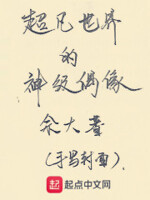 超凡世界
的
神级偶像

(手写封面)
起点中文网